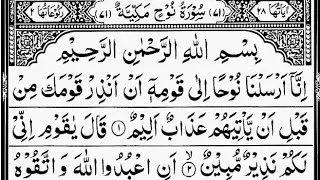 اٰیَاتُهَا ۲۸ (۷۱) سُوْرَةُ نُوْحٍ مَكِّيَّةٌ (۷۱) رُكُوْعَاتُهَا ۲
بِسْمِ اللّٰهِ الرَّحْمٰنِ الرَّحِيْمِ
اِنَّاۤ اَرْسَلْنَا نُوْحًا اِلٰى قَوْمِهٖۤ اَنْ اَنْذِرْ قَوْمَكَ مِنْ
قَبْلِ اَنْ يَّاْتِيَهُمْ عَذَابٌ اَلِيْمٌ ۝۱ قَالَ يٰقَوْمِ اِنِّيْ
لَكُمْ نَذِيْرٌ مُّبِيْنٌ ۝۲ۙ اَنِ اعْبُدُوا اللّٰهَ وَاتَّقُوْهُ